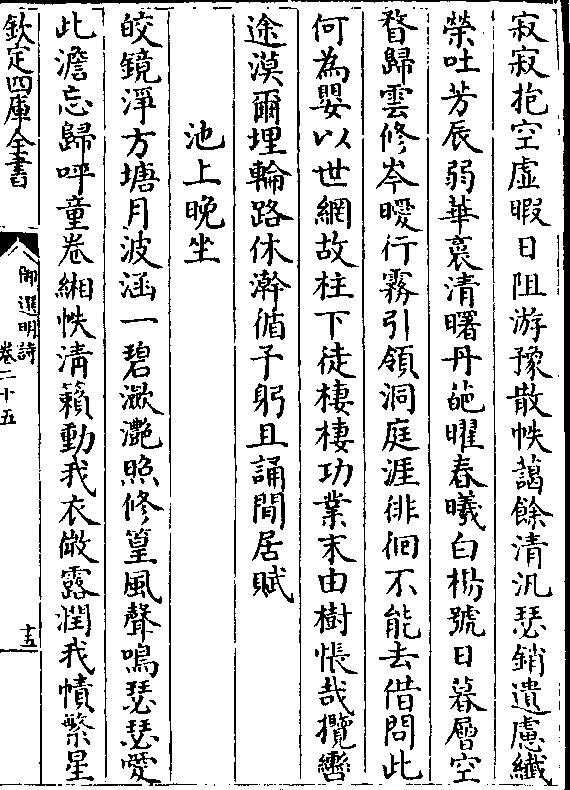 寂寂抱空虛暇日阻游豫散帙藹餘清汎瑟銷遺慮纎
榮吐芳辰弱華裛清曙丹葩曜春曦白楊號日暮層空
瞀歸雲修岑曖行霧引領洞庭涯徘徊不能去借問此
何為嬰以世網故柱下徒棲棲功業末由樹悵哉攬轡
途漠爾埋輪路休澣循予躬且誦閒居賦
池上晚坐
皎鏡淨方塘月波涵一碧瀲灔照修篁風聲鳴瑟瑟愛
此澹忘歸呼童卷緗帙清籟動我衣微露潤我幘繁星
欽定四庫全書
御選明詩
卷二十五
十五